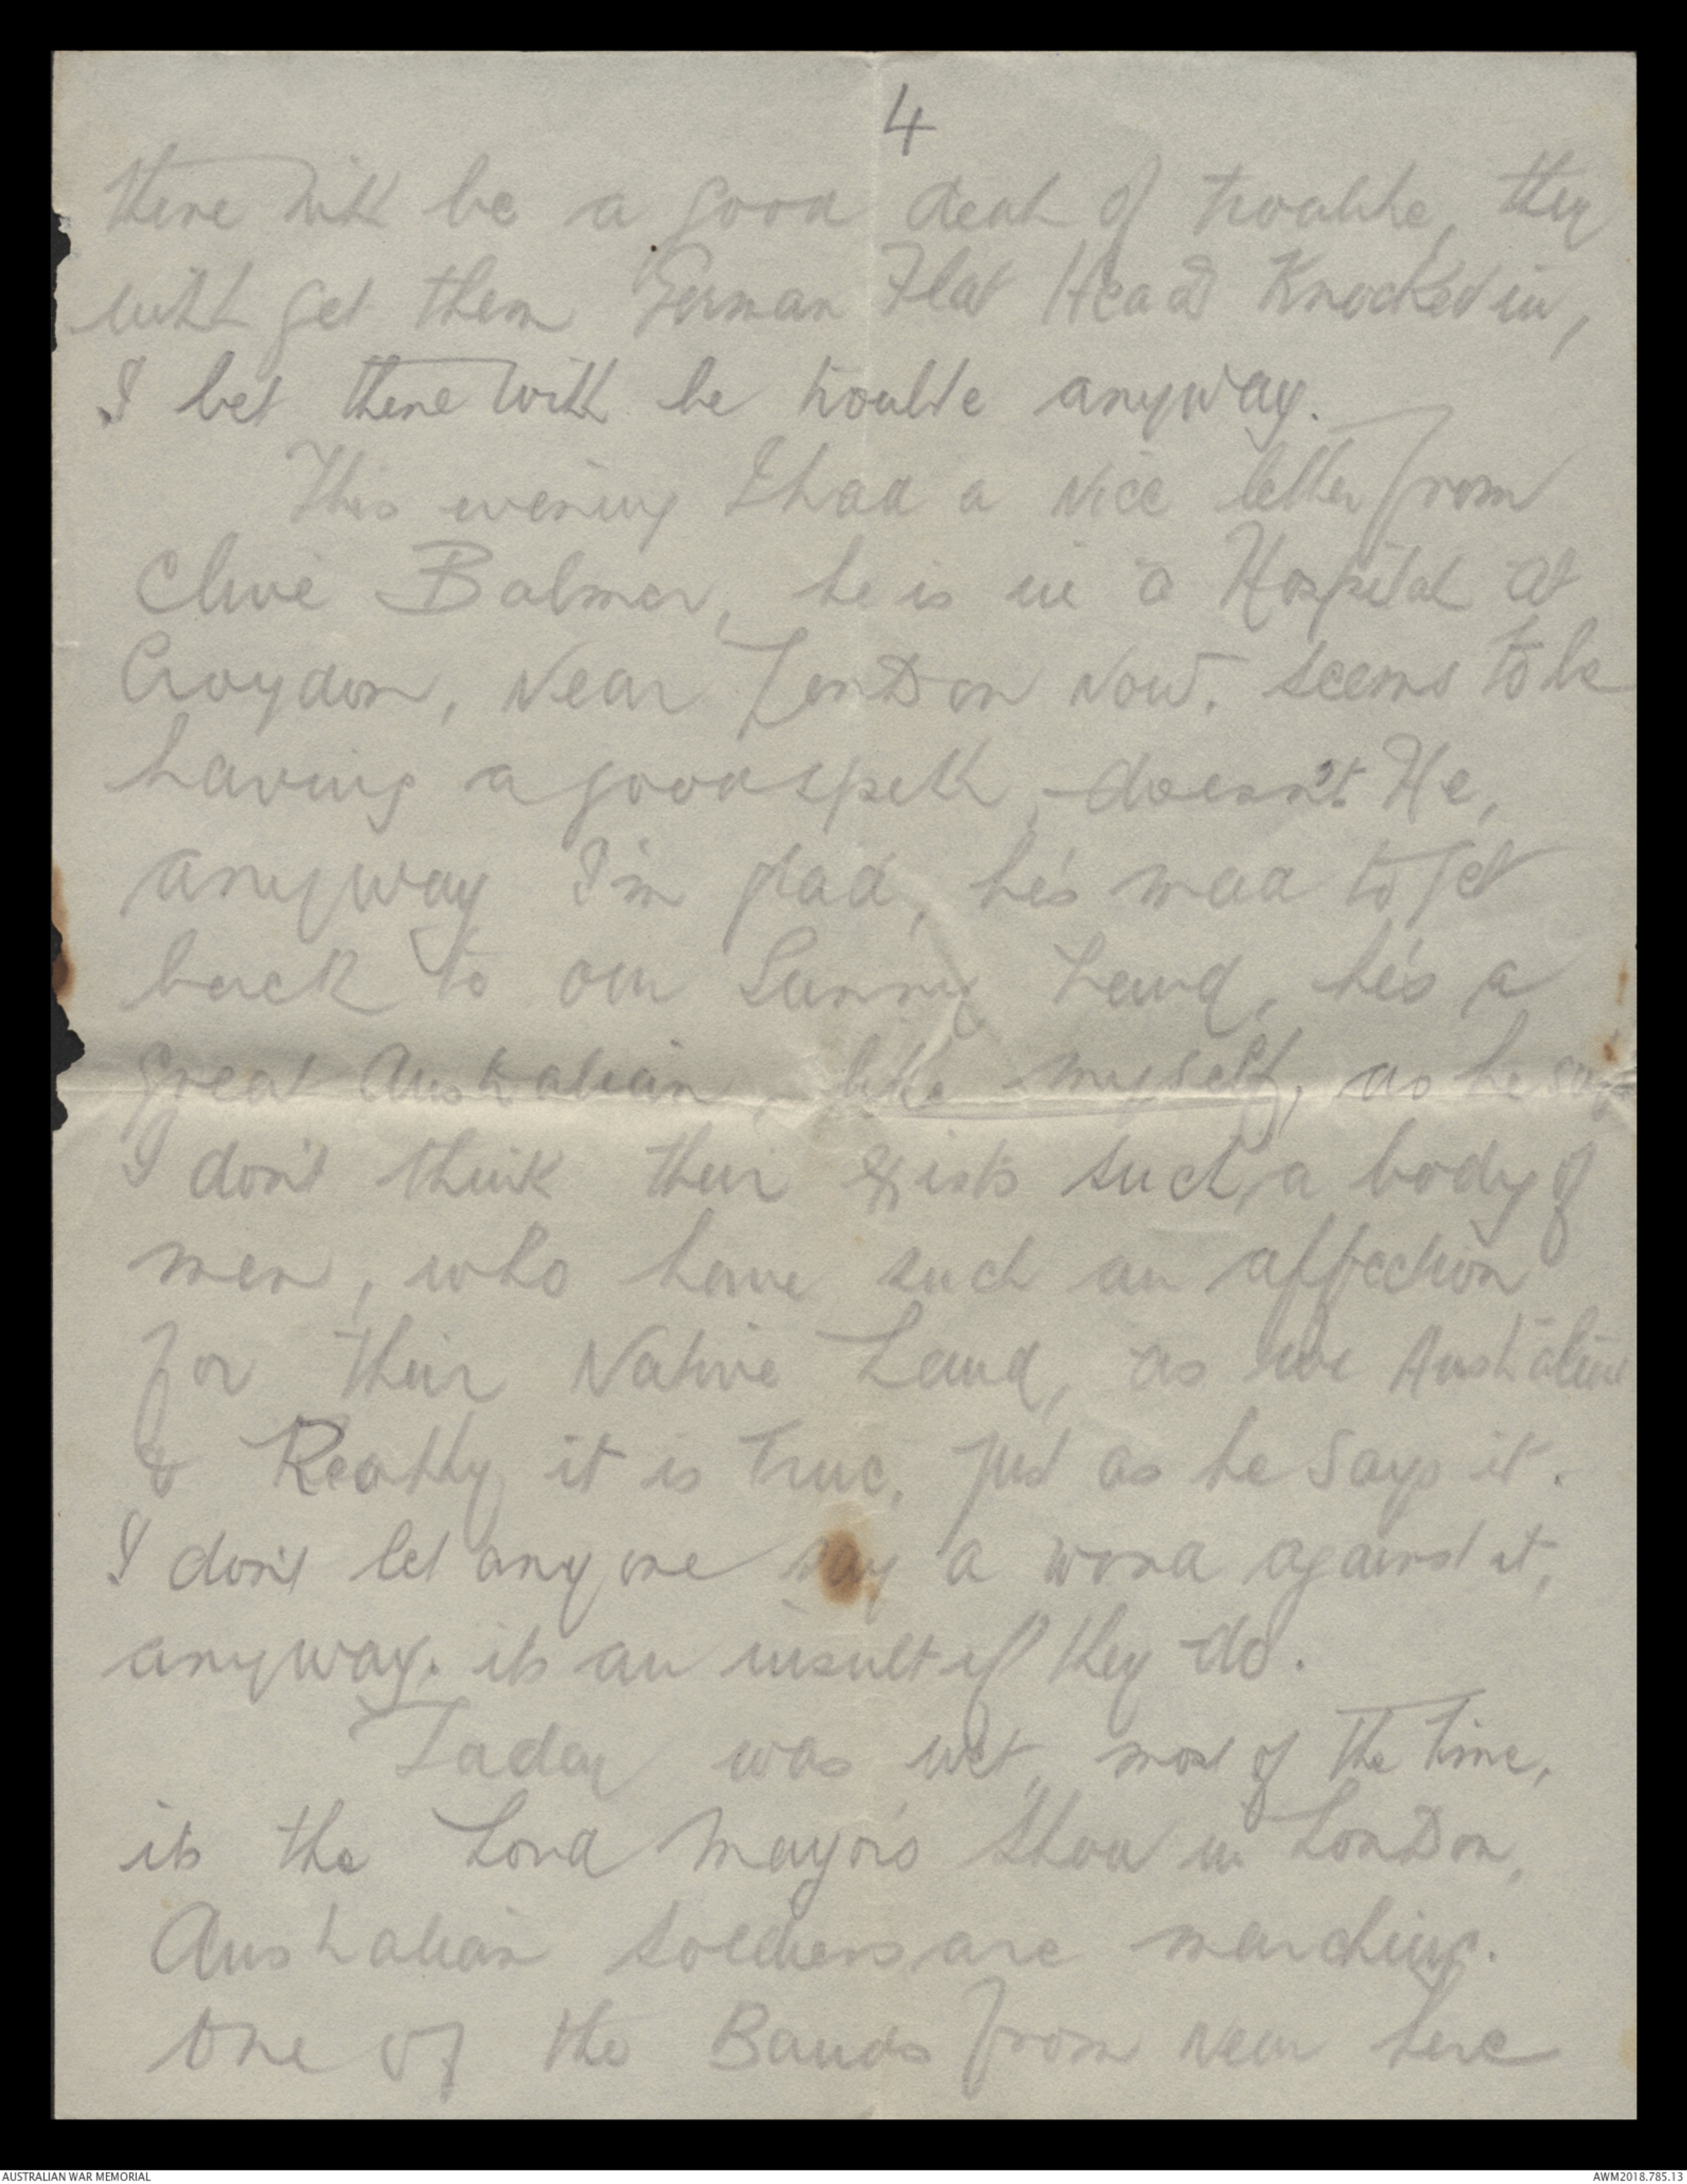 4
there will be a good deal of trouble, they
will get them German Flat Head Knocked in,
I bet there will be trouble anyway.
This evening I had a Nice letter from
Clive Balmer, he is in a Hospital at
Croydon, Near London Now. seems to be
having a good spell, doesn't He,
anyway I'm glad, he's mad to get
back to our Sunny Land, he's a
great Australian, like myself, as he says
I don't think their Exists such a body of
men, who have such an affection
for their Native Land, as we Australians
& Really it is True, just as he says it.
I don't let any one say a word against it,
anyway. its an insult if they do.
Today was wet, most of the Time,
its the Lord Mayor's Show in London,
Australian soldiers are marching.
One of the Bands from Near here
AUSTRALIAN WAR MEMORIAL
AWM2018.785.13